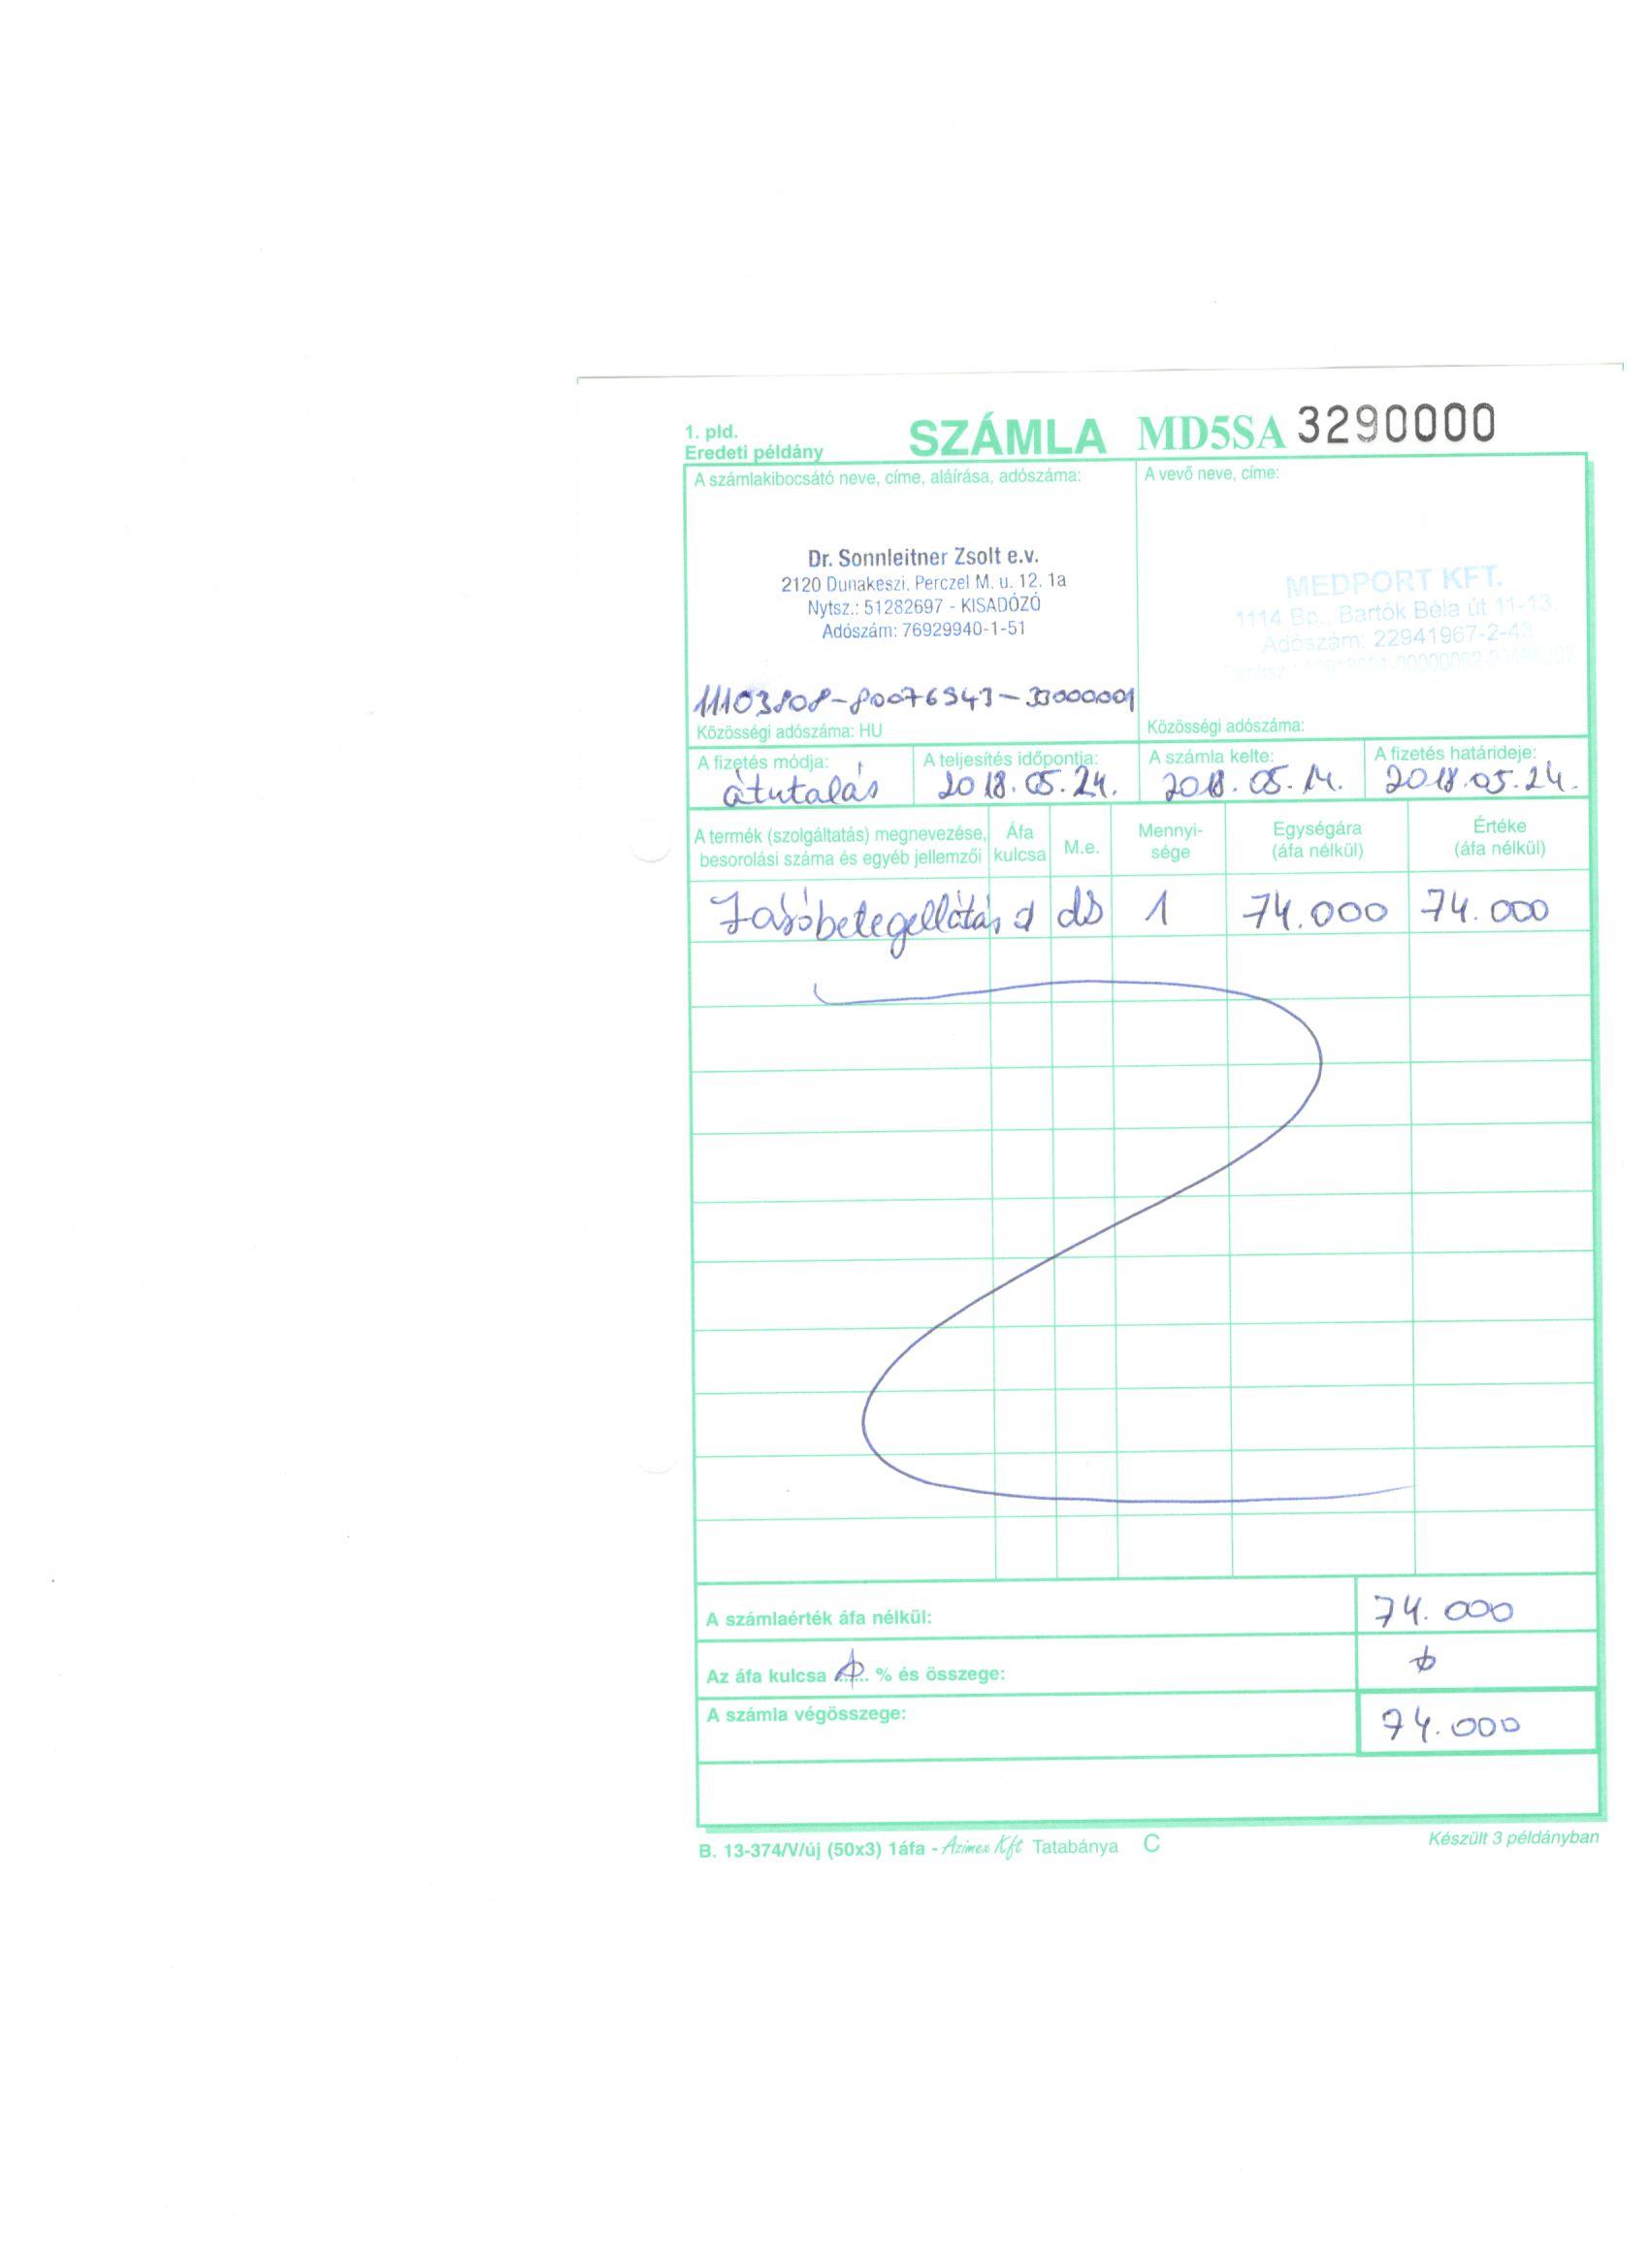 1. pld.
Eredeti példány
SZÁMLA MD5SA 3290000
A számlakibocsátó neve, címe, aláírása, adószáma:
Dr. Sonnleitner Zsolt e.v.
2120 Dunakeszi, Perczel M. u. 12. 1a
Nytsz.: 51282697 - KISADÓZÓ
Adószám: 76929940-1-51
11103808-80076943-33000001
Közösségi adószáma: HU
A vevő neve, címe:
MEDPORT KFT.
1114 Bp., Bartók Béla út 11-13.
Adószám: 22941967-2-43
Közösségi adószáma:
A fizetés módja: A teljesítés időpontja: A számla kelte: A fizetés határideje:
átutalás 2018.05.24. 2018.05. 2018.05.24.
A termék (szolgáltatás) megnevezése, besorolási száma és egyéb jellemzői Áfa kulcsa M.e. Mennyi-sége Egységára (áfa nélkül) Értéke (áfa nélkül)
Járóbetegellátás db 1 74.000 74.000
A számlaérték áfa nélkül: 74.000
Az áfa kulcsa % és összege:
A számla végösszege: 74.000
B. 13-374/V/új (50x3) 1áfa - Azimex Kft Tatabánya C Készült 3 példányban